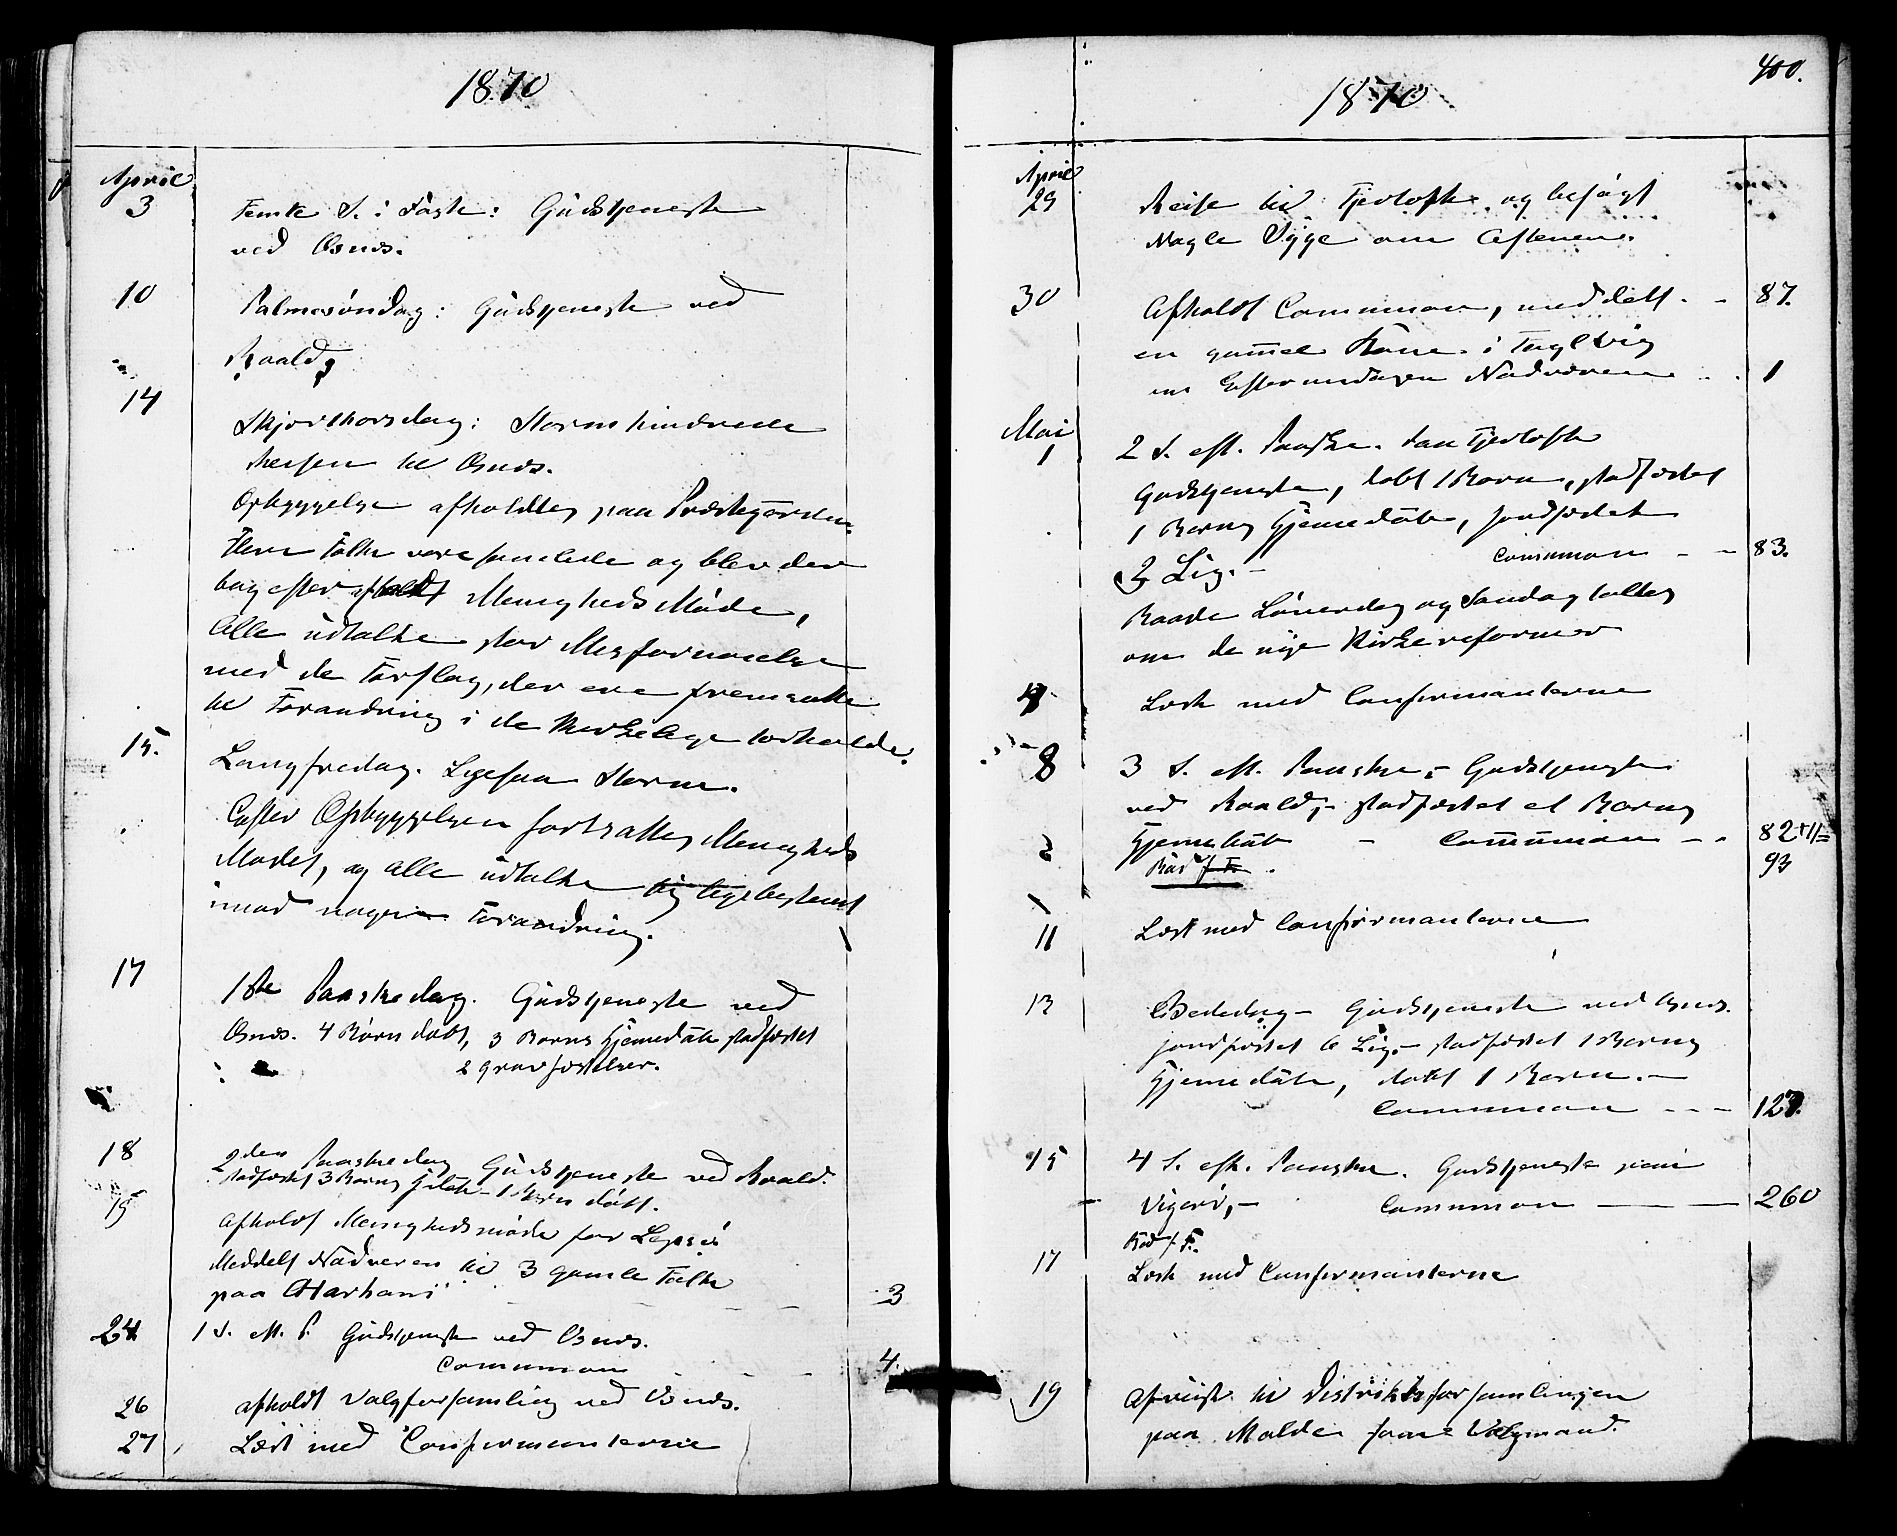 1870
April
3 Femte S. i Faste: Gudstjeneste
ved Osnæs.
10 Palmesøndag: Gudstjeneste ved
Roald
14
Skjærthorsdag: Storm hindrede
Reisen til Osnæs.
Opbyggelse afholdtes paa Præstegården.
Flere Folk vare samlede og blev der
bagefter afholdt Menigheds Møde,
Alle udtalte stor Misfornøielse
med de Forslag, der ere fremsatte
til Forandring i de kirkelige Forholde.
15. Langfredag. Ligesaa Storm.
Efter Opbyggelsen fortsattes Menigheds
Mødet, og alle udtalte sig ligebestemt
imod nogen Forandring.
17 1ste Paaskedag. Gudstjeneste ved
Osnæs. 4 Børn døbt, 3 Børns Hjemedåb stadfæstet
2 Gravfæstelser.
18 2den Paaskedag Gudstjeneste ved Roald.
stadfæstet 3 Børns Hjdåb - 1 Børn døbt.
19 Afholdt Menighedsmøde for Lepsø
Meddelt Nadveren til 3 gamle Folk
paa Harham 3
24 1 S. eft. P. Gudstjeneste ved Osnæs.
Communion 4.
26 afholdt Valgforsamling ved Osnæs.
27 Læst med Confirmanterne
400.
1870
April
29 Reise til Fjertoft og besøgt
Nogle Syge om Aftenen.
30 Afholdt Communion, meddelt 87.
en gammel Kone i
om Eftermidagen Nadveren 1
Mai
1 2 S. eft. Paaske. Paa Fjertoft
Gudstjeneste, døbt 1 Barn, stadfæstet
1 Barns Hjemedåb, jordfæstet
3 Lig. - Communion 83.
Baade Lørdag og Søndag taltes
om de nye Kirkereformer
4 Læst med Confirmanterne
8 3 S. eft. Paaske - Gudstjeneste
ved Roald, - stadfæstet et Barns
Hjemedåb - Communion 82+11=
93
11 Læst med Confirmanterne
13 Bededag - Gudstjeneste ved Osnæs.
jordfæstet 6 Lig. - stadfæstet 1 Barns
Hjemedåb, døbt 1 Barn. -
Communion 127.
15 4 S. eft. Paaske. Gudstjeneste paa
Vigerø, - Communion 260
17 Læst med Confirmanterne
19 Afreist til Distriktsforsamlingen
paa Molde som Valgmand.